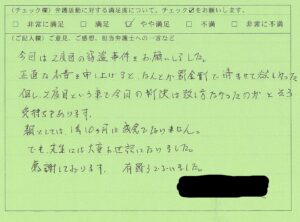 (チェック欄)弁護活動に対する満足度について、チェック☑をお願いします。
□ 非常に満足 □ 満足 ☑ やや満足 □ 不満 □ 非常に不満
(ご記入欄)ご意見、ご感想、担当弁護士への一言など
今回は2度目の窃盗事件をお願いしました。
正直な本音を申し上げると、なんとか罰金刑で済ませて欲しかった
但し、2度目という事で今回の判決は致し方なかったのかとそう
受持ちもあります。
親としては、1年10ヶ月は感覚でないません。
でも、先生には大変お世話になりました。
感謝しております。有難うございました。